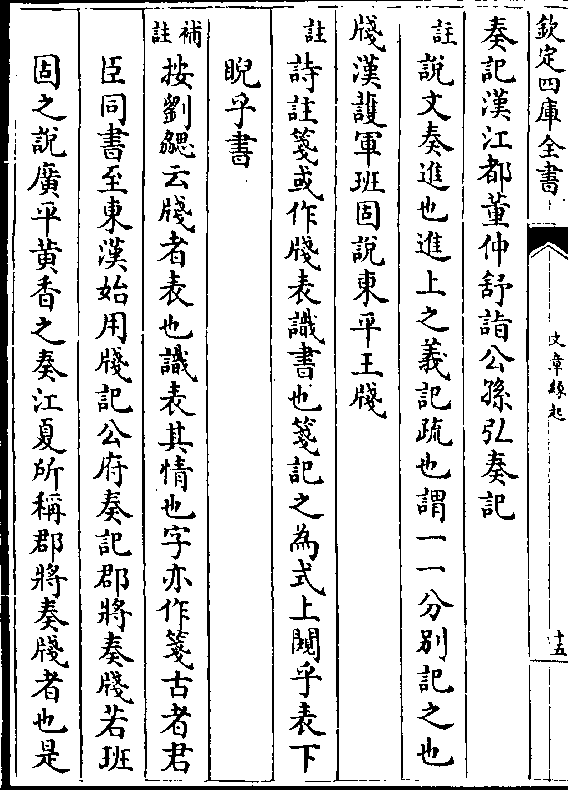 欽定四庫全書
文章緣起
十五
奏記漢江都董仲舒詣公孫弘奏記
註說文奏進也進上之義記疏也謂一一分別記之也
牋漢護軍班固說東平王牋
註詩註箋或作牋表識書也箋記之為式上闚乎表下
睨乎書
補註按劉勰云牋者表也識表其情也字亦作箋古者君
臣同書至東漢始用牋記公府奏記郡將奏牋若班
固之說廣平黃香之奏江夏所稱郡將奏牋者也是